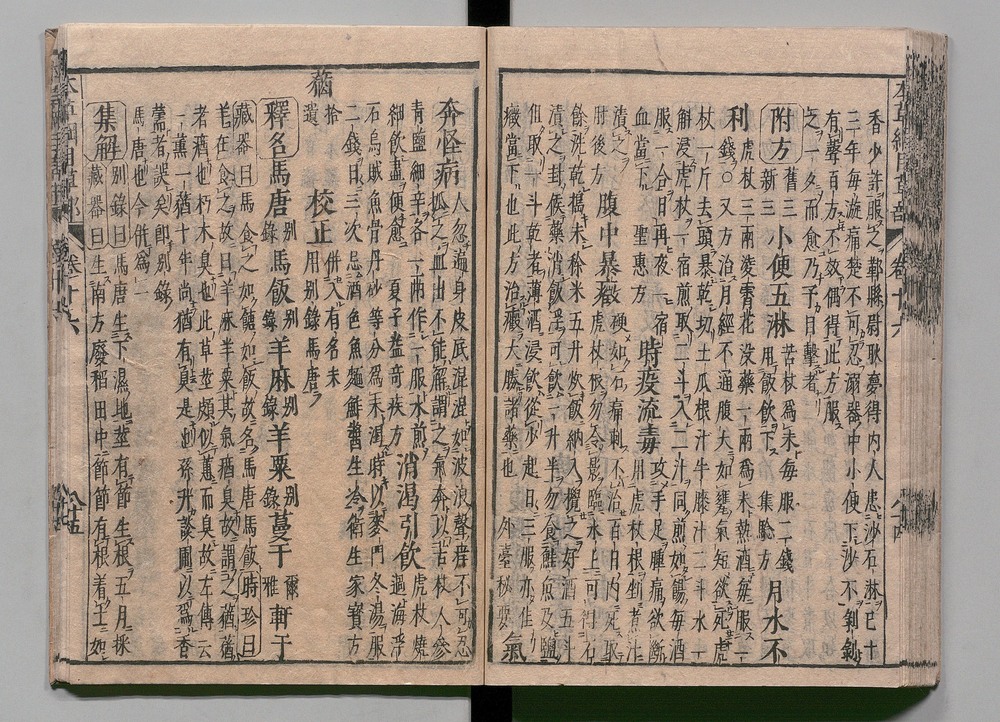 香少許服之鄞縣尉耿夢得内人患沙石淋已十
三年每漩痛楚不可忍溺器中小便下沙石剥剥
有聲百方不效偶得此方服
之一夕而愈乃予目擊者
附方舊三新三小便五淋苦杖爲末每服二錢用飯飲下集驗方月水不
利虎杖三兩凌霄花没藥一兩爲末熱酒每服一
錢○又方治月經不通腹大如甕氣短欲死虎
杖一斤去頭暴乾切土瓜根汁牛膝汁二斗水一
斛浸虎杖一宿煎取二斗入二汁同煎如餳每酒
服一合日再夜一宿
血當下聖惠方時疫流毒攻手足腫痛欲斷用虎杖根剉煮汁
漬之肘後方腹中暴癥硬如石痛刺不治百日内死取虎杖根勿令影臨水上可得石
餘洗乾擣末秫米五升炊飯納入攪之好酒五斗
漬之封候藥消飯浮可飲一升半勿食鮭魚及鹽
但取一斗乾者薄酒浸飲從少起日三服亦佳
癥當下也此方治癥大勝諸藥也外臺秘要氣
奔怪病人忽遍身皮底混混如波浪聲痒不可忍
抓之血出不能解謂之氣奔以苦杖人參
青鹽細辛各一兩作一服水煎
細飲盡便愈夏子益奇疾方消渴引飲虎杖燒過海浮
石烏賊魚骨丹砂等分爲末渴時以麥門冬湯服
二錢日三次忌酒色魚麵鮮醬生冷衛生家寶方
蕕拾遺校正併入有名未用别録馬唐
釋名馬唐别録馬飯别録羊麻别録羊粟别録蔓于爾雅軒于
藏器曰馬食之如糖如飯故名馬唐馬飯時珍曰
羊亦食之故曰羊麻羊粟其氣瘤臭故謂之蕕蕕
者瘤也朽木臭也此草莖頗似蕙而臭故左傳云
一薰一蕕十年尚猶有臭是也孫升談圃以爲香
薷者誤矣即别録
馬唐也今併爲一
集解别録曰馬唐生下濕地莖有節生根五月採藏器曰生南方廢稻田中節節有根着土如